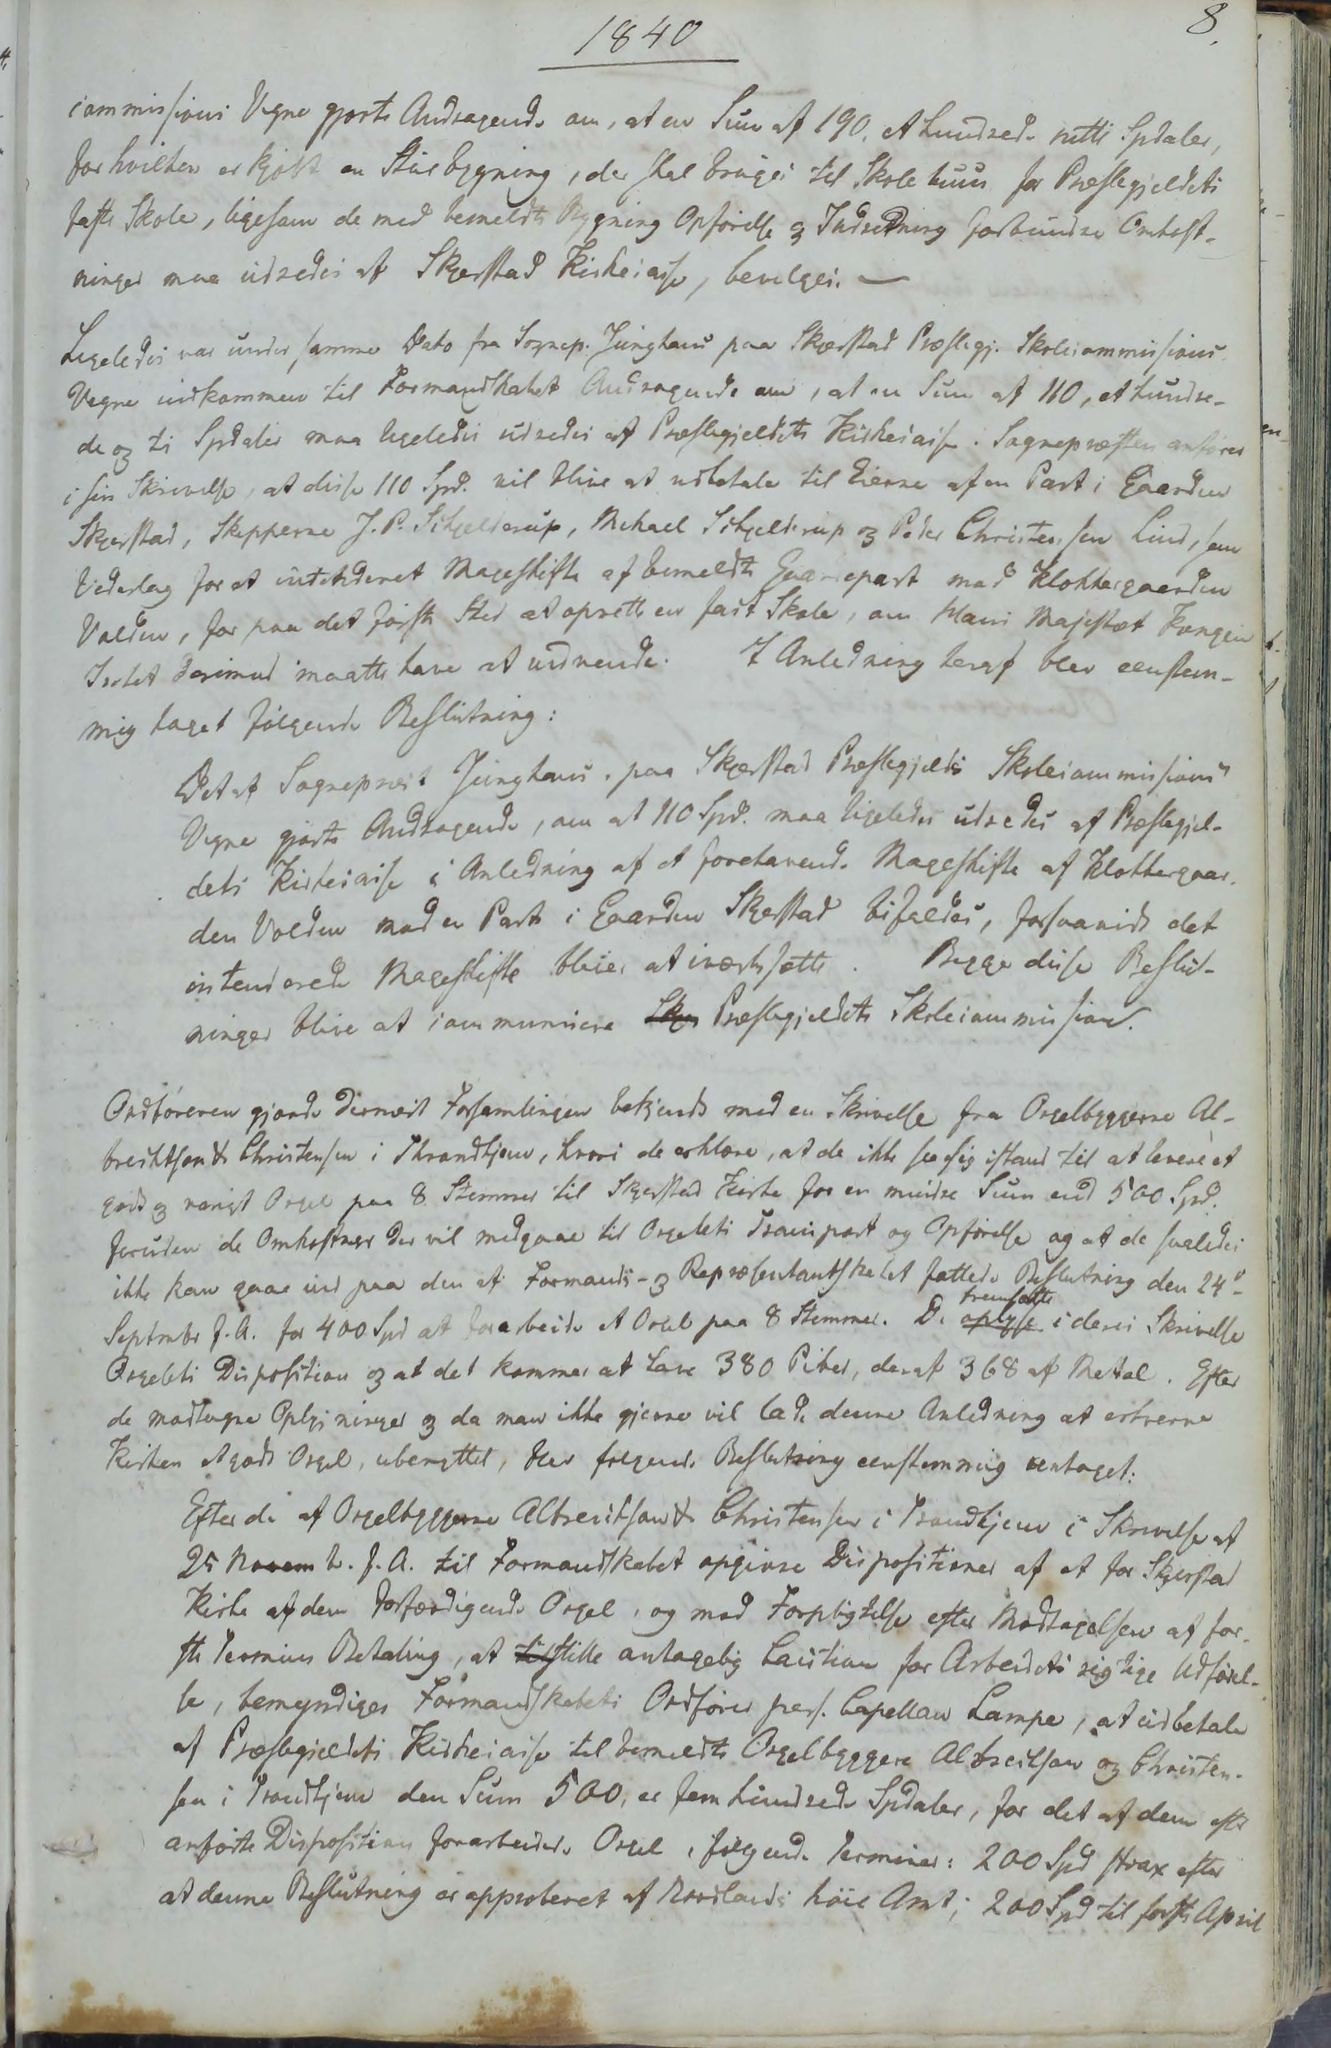 1840
8.
commissions Vegne gjorte Andragende om, at en Sum af 190, et hundrede nitti Spdaler,
for hvilken er kjøbt en Stuebygning, der skal bruges til Skolehuus for Præstegjeldets
faste Skole, ligesom de med bemeldte Bygnings Opførelse og Indredning forbundne Omkost-
ninger maa udredes af Skjerstad Kirkecasse, bevilges. —
Ligeledes var under samme Dato fra Sognep. Junghans paa Skjerstad Præstegj. Skolecommissions
Vegne indkommen til Formandskabet Andragende om, at en Sum af 110, et hundre-
de og ti Spdaler maa ligeledes udredes af Præstegjeldets Kirkecasse. Sognepræsten anfører
i sin Skrivelse, at disse 110 Spd. vil blive at udbetale til Eierne af en Part i Gaarden
Skjerstad, Skipperne J. P. Schjelderup, Michael Schjelderup og Peder Christensen Lind, som
Vederlag for et intenderet Mageskifte af bemeldte Gaardepart med Klokkergaarden
Volden, for paa det første Sted at oprette en fast Skole, om Hans Majestæt Kongen
Intet derimod maatte have at indvende. I Anledning heraf blev eenstem-
mig taget følgende Beslutning:
Det af Sognepræst Junghans paa Skjerstad Præstegjelds Skolecommissions
Vegne gjorte Andragende, om at 110 Spd. maa ligeledes udredes af Præstegjel-
dets Kirkecasse i Anledning af et forehavende Mageskifte af Klokkergaar-
den Volden med en Part i Gaarden Skjerstad bifaldes, forsaavidt det
intenderede Mageskifte bliver at iværksætte. Begge disse Beslut-
ninger blive at communicere Skje Præstegjeldets Skolecommission.
Ordføreren gjorde dernæst Forsamlingen bekjendt med en Skrivelse fra Orgelbyggerne Al-
brechtson & Christensen i Throndhjem, hvori de erklære, at de ikke see sig istand til at levere et
godt og varigt Orgel paa 8 Stemmer til Skjerstad Kirke for en mindre Sum end 500 Spd.
foruden de Omkostninger der vil medgaae til Orgelets Transport og Opførelse og at de saaledes
ikke kan gaae ind paa den af Formands- og Repræsentantskabet fattede Beslutning den 24de
Septmbr f. A. for 400 Spd at forarbeide et Orgel paa 8 Stemmer. De oplyse fremsætte i deres Skrivelse
Orgelets Disposition og at det kommer at have 380 Piber, deraf 368 af Metal. Efter
de modtagne Oplysninger og da man ikke gjerne vil lade denne Anledning at erhverve
Kirken et godt Orgel, ubenyttet, blev følgende Beslutning eenstemmig antaget:
Efter de af Orgelbyggerne Albrechtson & Christensen i Trondhjem i Skrivelse af
25 Novem b. f. A. til Formandskabet opgivne Dispositioner af et for Skjerstad
Kirke af dem forfærdigende Orgel, og med Forpligtelse efter Modtagelsen af før-
ste Termins Betaling, at tilstille antagelig Caution for Arbeidets rigtige Udførel-
se, bemyndiges Formandskabets Ordfører pers. Capellan Lampe, at udbetale
af Præstegjeldets Kirkecasse til bemeldte Orgelbyggere Albrechtson og Christen-
sen i Trondhjem den Sum 500, er fem hundrede Spdaler, for det af dem efter
anførte Disposition forarbeidede Orgel, i følgende Terminer: 200 Spd strax efter
at denne Beslutning er approberet af Nordlands høie Amt; 200 Spd til første April